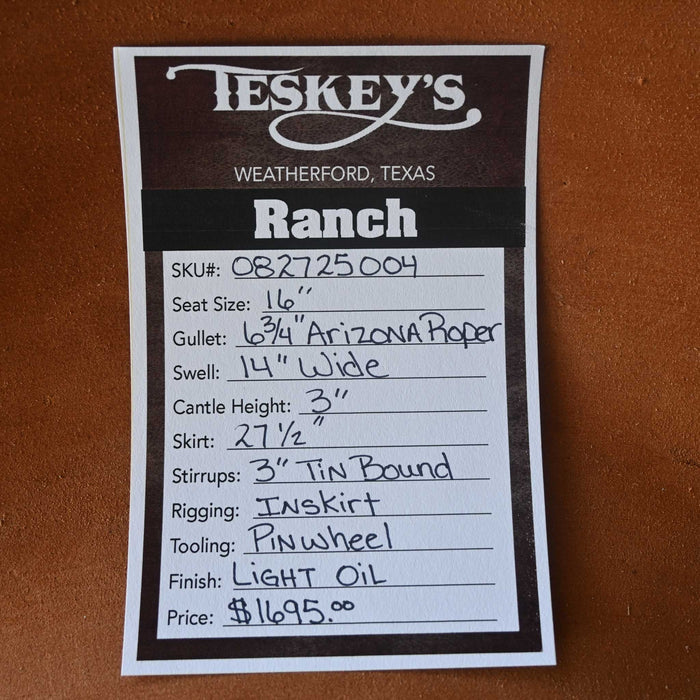 TESKEY'S
WEATHERFORD, TEXAS
Ranch
SKU#: 082725004
Seat Size: 16"
Gullet: 6 3/4" ArizonA Roper
Swell: 14" Wide
Cantle Height: 3"
Skirt: 27 1/2"
Stirrups: 3" Tin Bound
Rigging: Inskirt
Tooling: Pinwheel
Finish: LIGHT OIL
Price: $1695.00